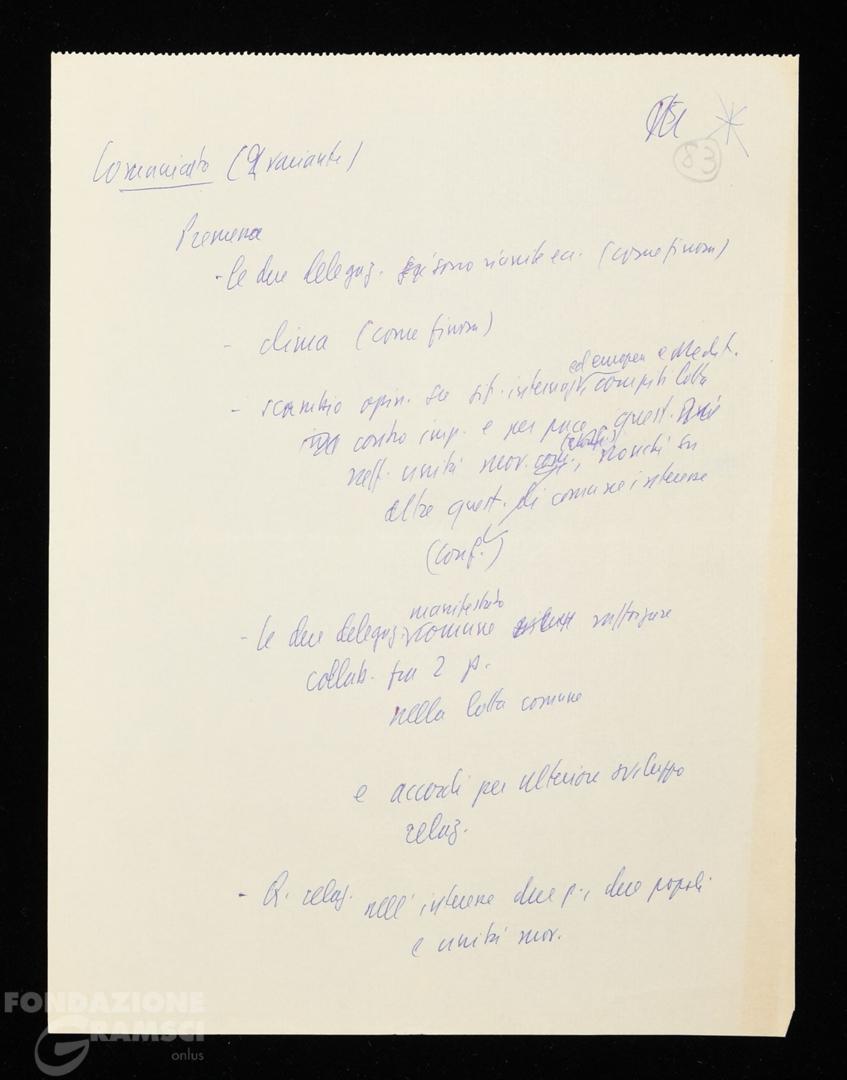 83
Comunicato (2 variante)
Premessa
- le due delegaz. si sono riunite ecc. (come finora)
- clima (come finora)
- scambio opin. su sit. internaz., ed europea e Medit. compiti lotta
contro imp. e per pace, quest.
raff. unità mov. nonché su
altre quest. di comune interesse
(conf.)
manifestato
- le due delegaz. comune rafforzare
collab. fra 2 p.
nella lotta comune
e accordi per ulteriore sviluppo
relaz.
- Q. relaz. nell'interesse due p., due popoli
e unità mov.
FONDAZIONE
GRAMSCI
onlus